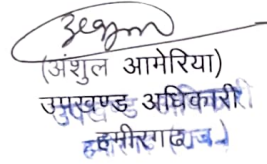 (अंशुल आमेरिया)
उपखण्ड अधिकारी
हमीरगढ़